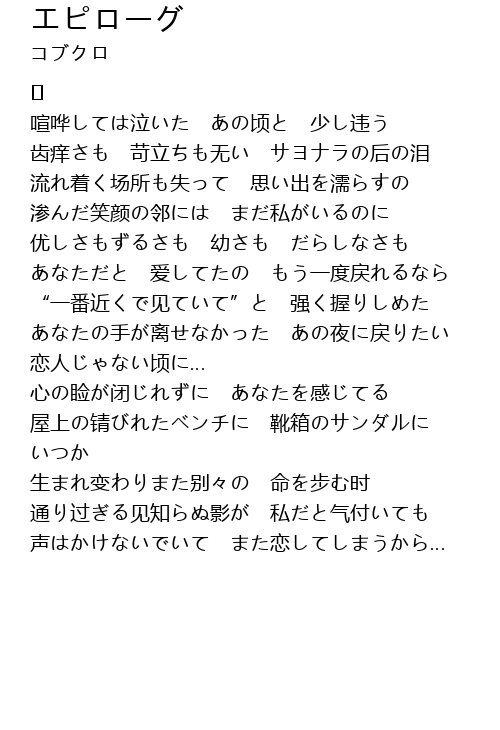 エピローグ
コブクロ
[]
喧哗しては泣いた　あの顷と　少し违う
齿痒さも　苛立ちも无い　サヨナラの后の泪
流れ着く场所も失って　思い出を濡らすの
渗んだ笑颜の邻には　まだ私がいるのに
优しさもずるさも　幼さも　だらしなさも
あなただと　爱してたの　もう一度戻れるなら
“一番近くで见ていて”と　强く握りしめた
あなたの手が离せなかった　あの夜に戻りたい
恋人じゃない顷に...
心の睑が闭じれずに　あなたを感じてる
屋上の锖びれたベンチに　靴箱のサンダルに
いつか
生まれ变わりまた别々の　命を步む时
通り过ぎる见知らぬ影が　私だと气付いても
声はかけないでいて　また恋してしまうから...